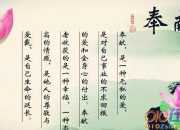 奉献
奉献,是一种无私的爱。
是对自己事业的不求回报
的爱和全身心的付出。奉献
者收获的是一种幸福,一种
高的情感,是他人的尊敬与
爱戴,是自己生命的延长。